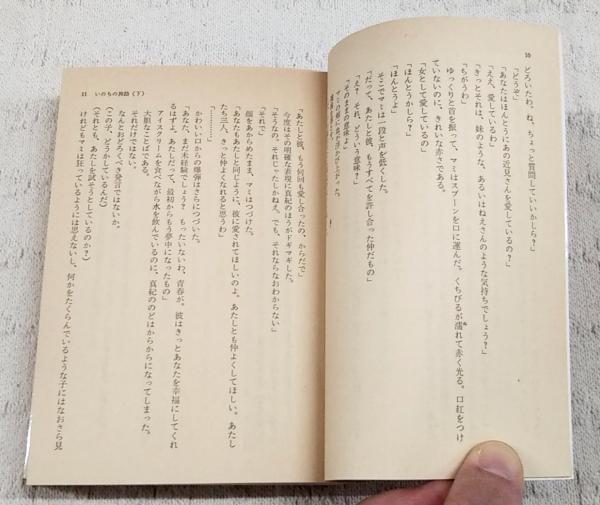 10
どろいたわ。ね、ちょっと質問していいかしら？」
「どうぞ」
「あなたはほんとうにあの近見さんを愛しているの？」
「ええ、愛しているわ」
「きっとそれは、妹のような、あるいはねえさんのような気持ちでしょう？」
「ちがうわ」
ゆっくりと首を振って、マミはスプーンを口に運んだ。くちびるが濡れて赤く光る。口紅をつけ
ていないのに、きれいな赤さである。
「女として愛しているの」
「ほんとうかしら？」
「ほんとうよ」
そこでマミは一段と声を低くした。
「だって、あたしと彼、もうすべてを許し合った仲だもの」
「え？　それ、どういう意味？」
「そのままの意味よ」
11　いのちの対話（下）
「あたしと彼、もう何回も愛し合ったの、からだで」
今度はその明確な表現に真紀のほうがドギマギした。
「そうなの、それじゃたしかねえ。でも、それならなおわからない」
「それで」
顔をあからめたまま、マミはつづけた。
「あなたもあたしと同じように、彼に愛されてほしいのよ。あたしとも仲よくしてほしい。あたし
たち三人、きっと仲よくなれると思うわ」
「…………」
かわいい口からの爆弾はさらにつづいた。
「あなた、まだ未経験でしょう？　もったいないわ、青春が。彼はきっとあなたを幸福にしてくれ
るはずよ。あたしだって、最初からもう夢中になったもの」
アイスクリームを食べながら水を飲んでいるのに、真紀ののどはからからになってしまった。
大胆なことばである。
それだけではない。
なんとおどろくべき発言ではないか。
（この子、どうかしているんだ）
（それとも、あたしを試そうとしているのか？）
けれどもマミは狂っているようには思えないし、何かをたくらんでいるような子にはなおさら見